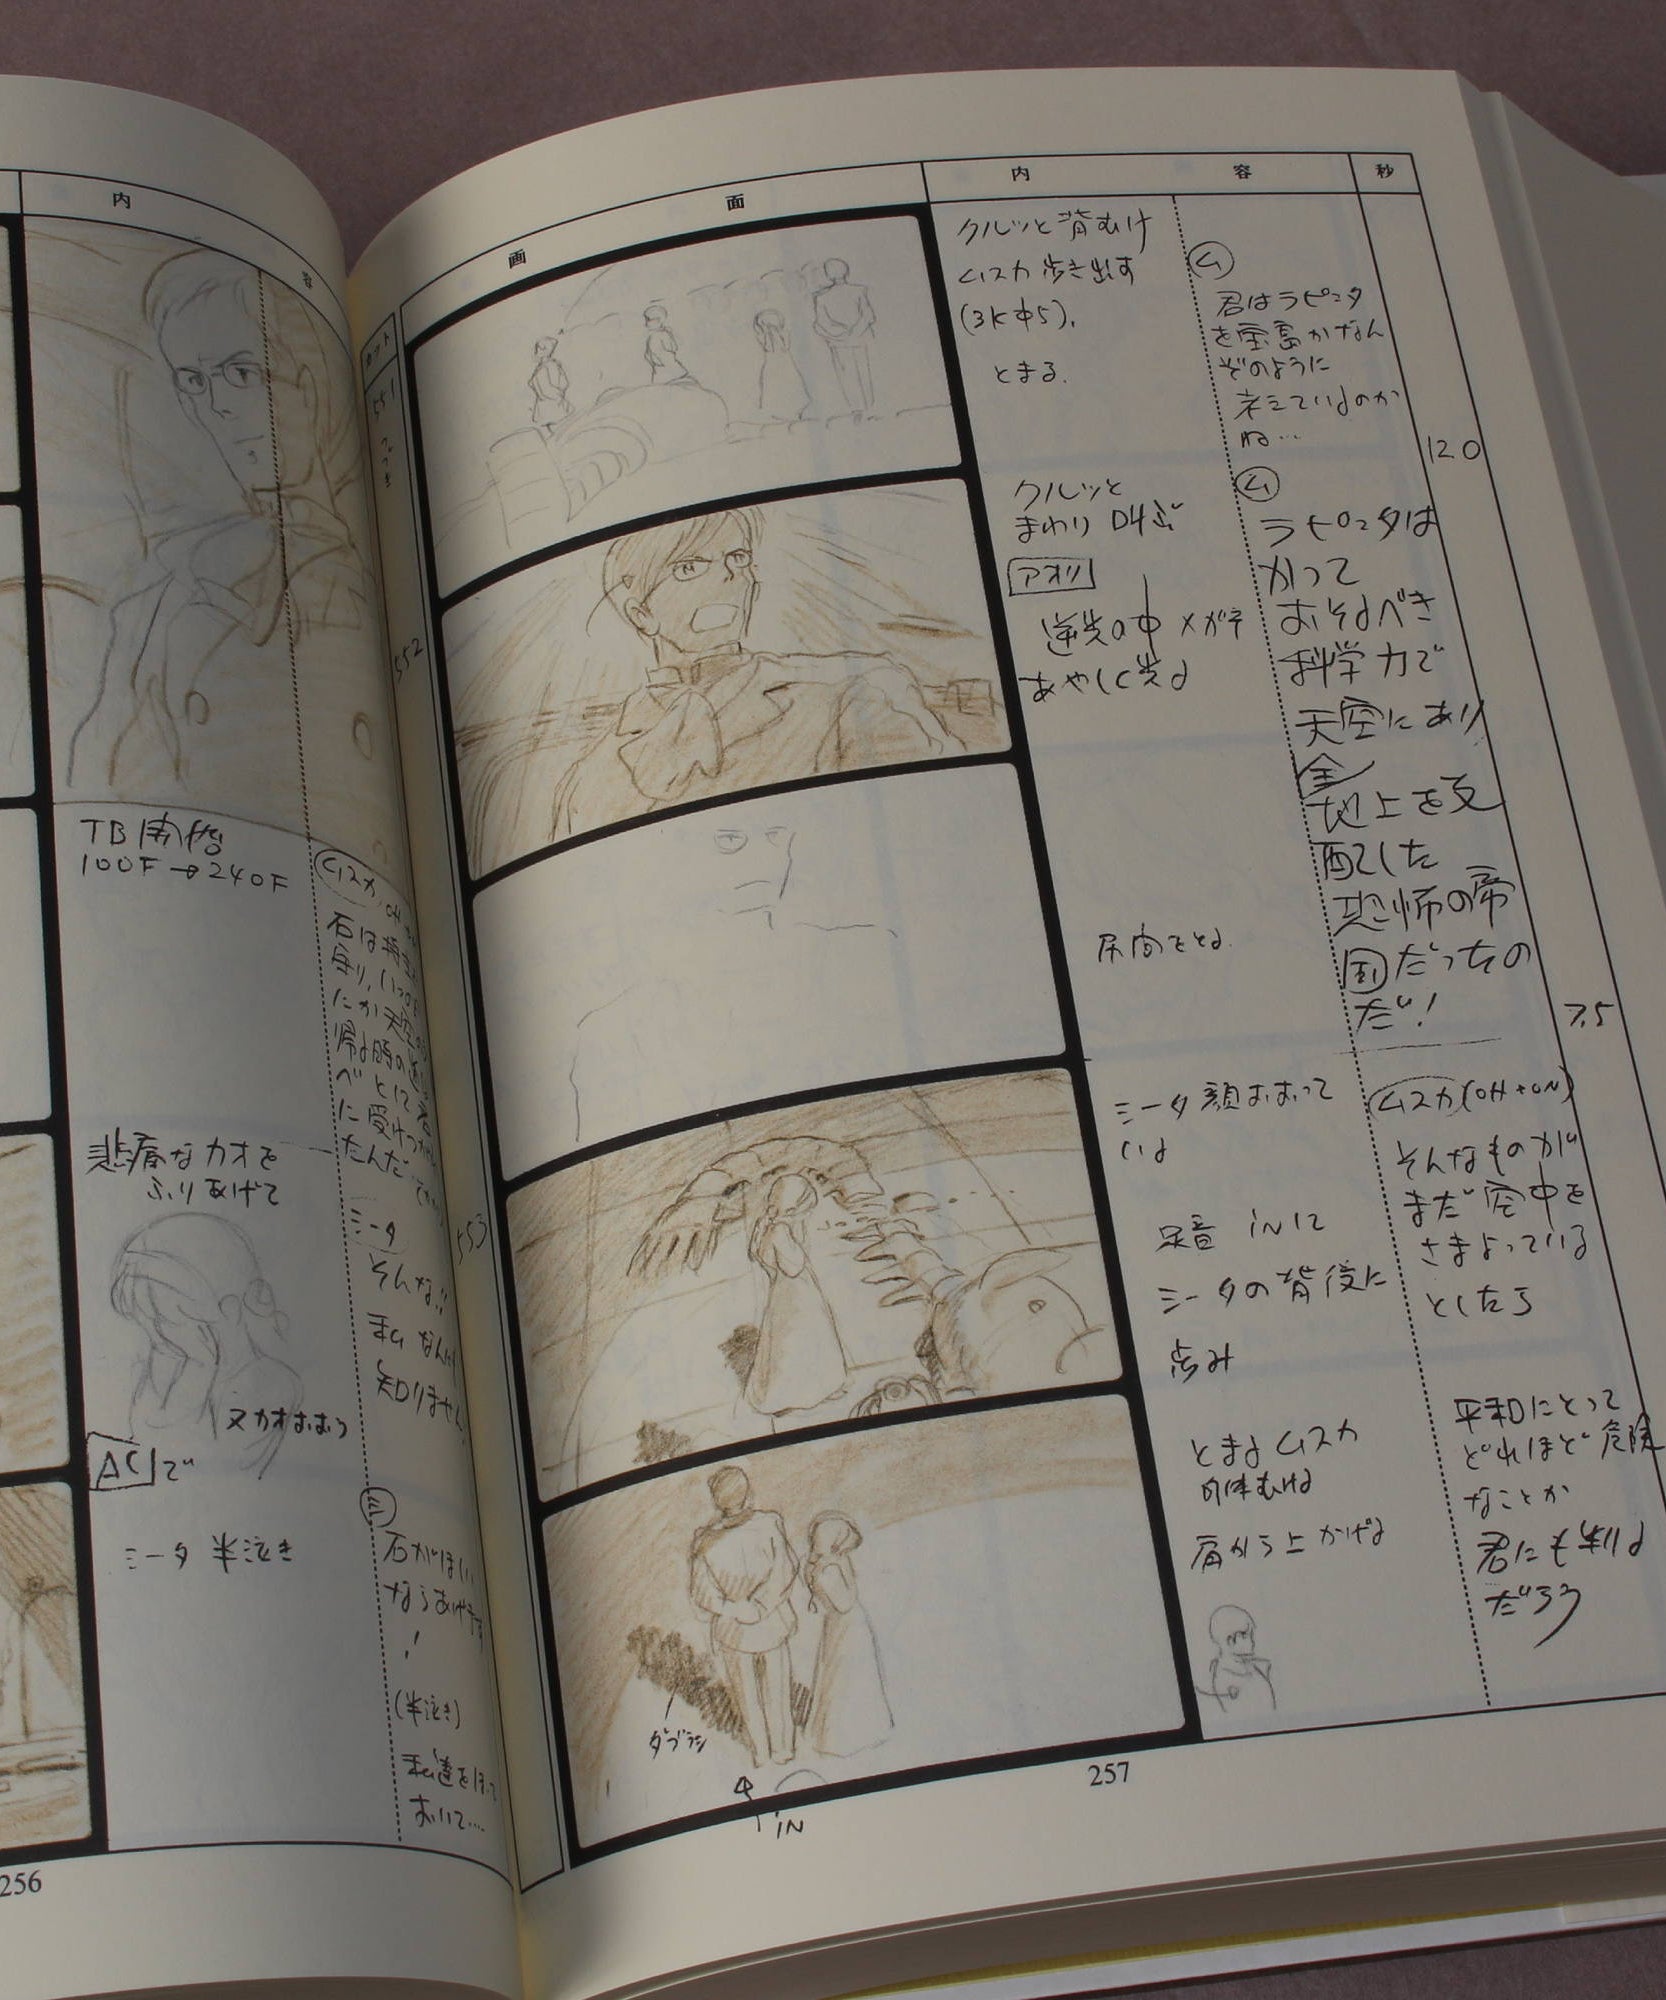 内
容
TB開始
100F→240F
ムスカ
悲痛なカオを
ふりあげて
シータ
そんな!!
私なんにも
知りません
又カオおおう
ACで
シータ 半泣き
シ
石がほしい
ならあげます
!
(半泣き)
私達をほって
おいて…
256
カット
画
面
内
容
秒
552
553
クルッと背むけ
ムスカ歩き出す
(3K中5)、
とまる.
ム
君はラピュタ
を宝島かなん
ぞのように
考えているのか
ね…
12.0
クルッと
まわり 叫ぶ
アオリ
逆光の中 メガネ
あやしく光る
ム
ラピュタは
かつて
おそるべき
科学力で
天空にあり
全
地上を支
配した
恐怖の帝
国だったの
だ!
間をとる.
7.5
シータ顔おおって
いる
足音 INに
シータの背後に
歩み
ムスカ(OFF+ON)
そんなものが
まだ空中を
さまよっている
としたら
とまるムスカ
肩から上かげる
平和にとって
どれほど危険
なことか
君にも判る
だろう
ダブラシ
IN
257